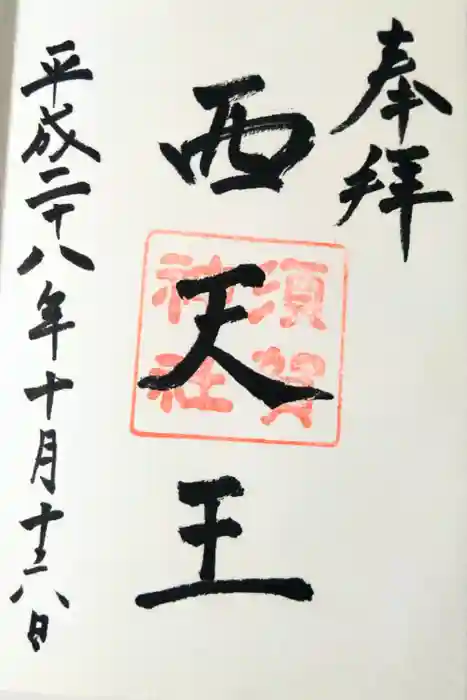 奉拝
西天王
須賀
神社
平成二十八年十月十六日